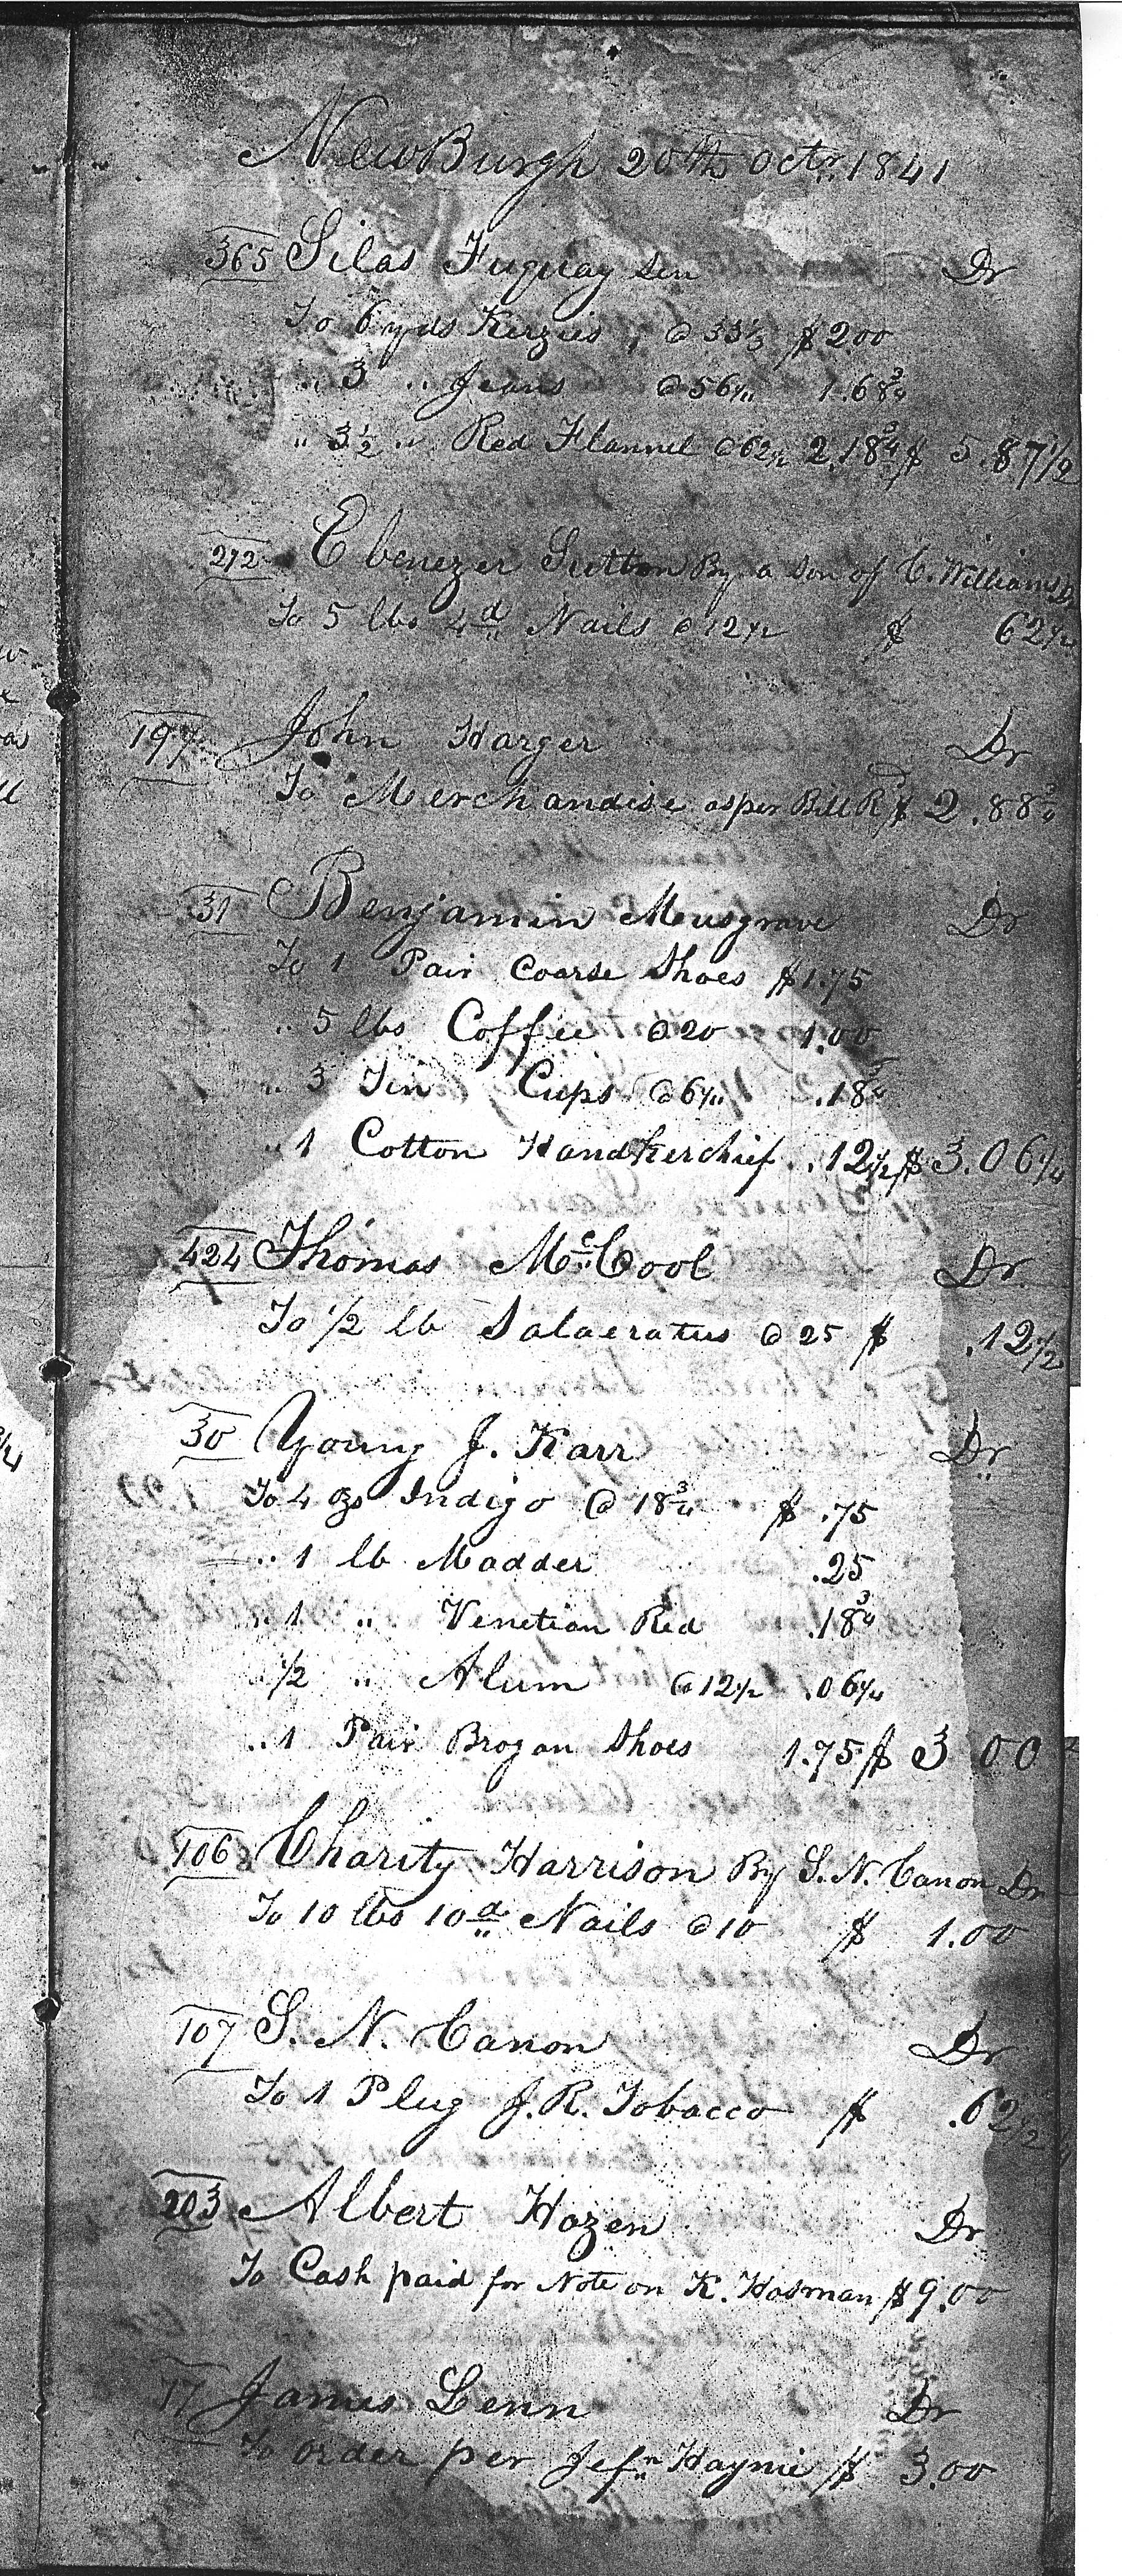 NewBurgh 20th Octr. 1841
365 Silas Fuquay Sen Dr
To 6 yds Kerzies, @ 33⅓ $2.00
" 3 " Jeans @ 56¼ 1.68¾
" 3½ " Red Flannel @ 62½ 2.18¾ $ 5.87½
272 Ebenezer Sutton By a Son of C. Williams Dr
To 5 lbs 4d Nails @ 12½ $ 62½
197 John Harger Dr
To Merchandise as per Bill Rd $ 2.88¾
31 Benjamin Musgrave Dr
To 1 Pair Coarse Shoes $1.75
" 5 lbs Coffee @ 20 1.00
" 3 Tin Cups @ 6¼ .18¾
" 1 Cotton Handkerchief .12½ $ 3.06¼
424 Thomas McCool Dr
To ½ lb Salaeratus @ 25 $ .12½
30 Young J. Karr Dr
To 4 ozs Indigo @ 18¾ $ .75
" 1 lb Madder .25
" 1 " Venetian Red .18¾
½ " Alum @ 12½ .06¼
" 1 Pair Brogan Shoes 1.75 $ 3 00
106 Charity Harrison By S. N. Canon Dr
To 10 lbs 10d Nails @ 10 $ 1.00
107 S. N. Canon Dr
To 1 Plug J. R. Tobacco $ .62½
203 Albert Hazen Dr
To Cash paid for Note on K. Hosman $9.00
77 James Lenn Dr
To order per Jefn Haynie $ 3.00